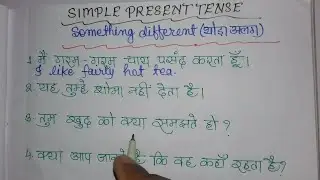 SIMPLE PRESENT TENSE
Something different (थोड़ा अलग)
1. मैं गरम-गरम चाय पसंद करता हूँ।
I like fairly hot tea.
2. यह तुम्हे शोभा नहीं देता है।
3. तुम खुद को क्या समझते हो ?
4. क्या आप जानते है कि वह कहाँ रहता है?